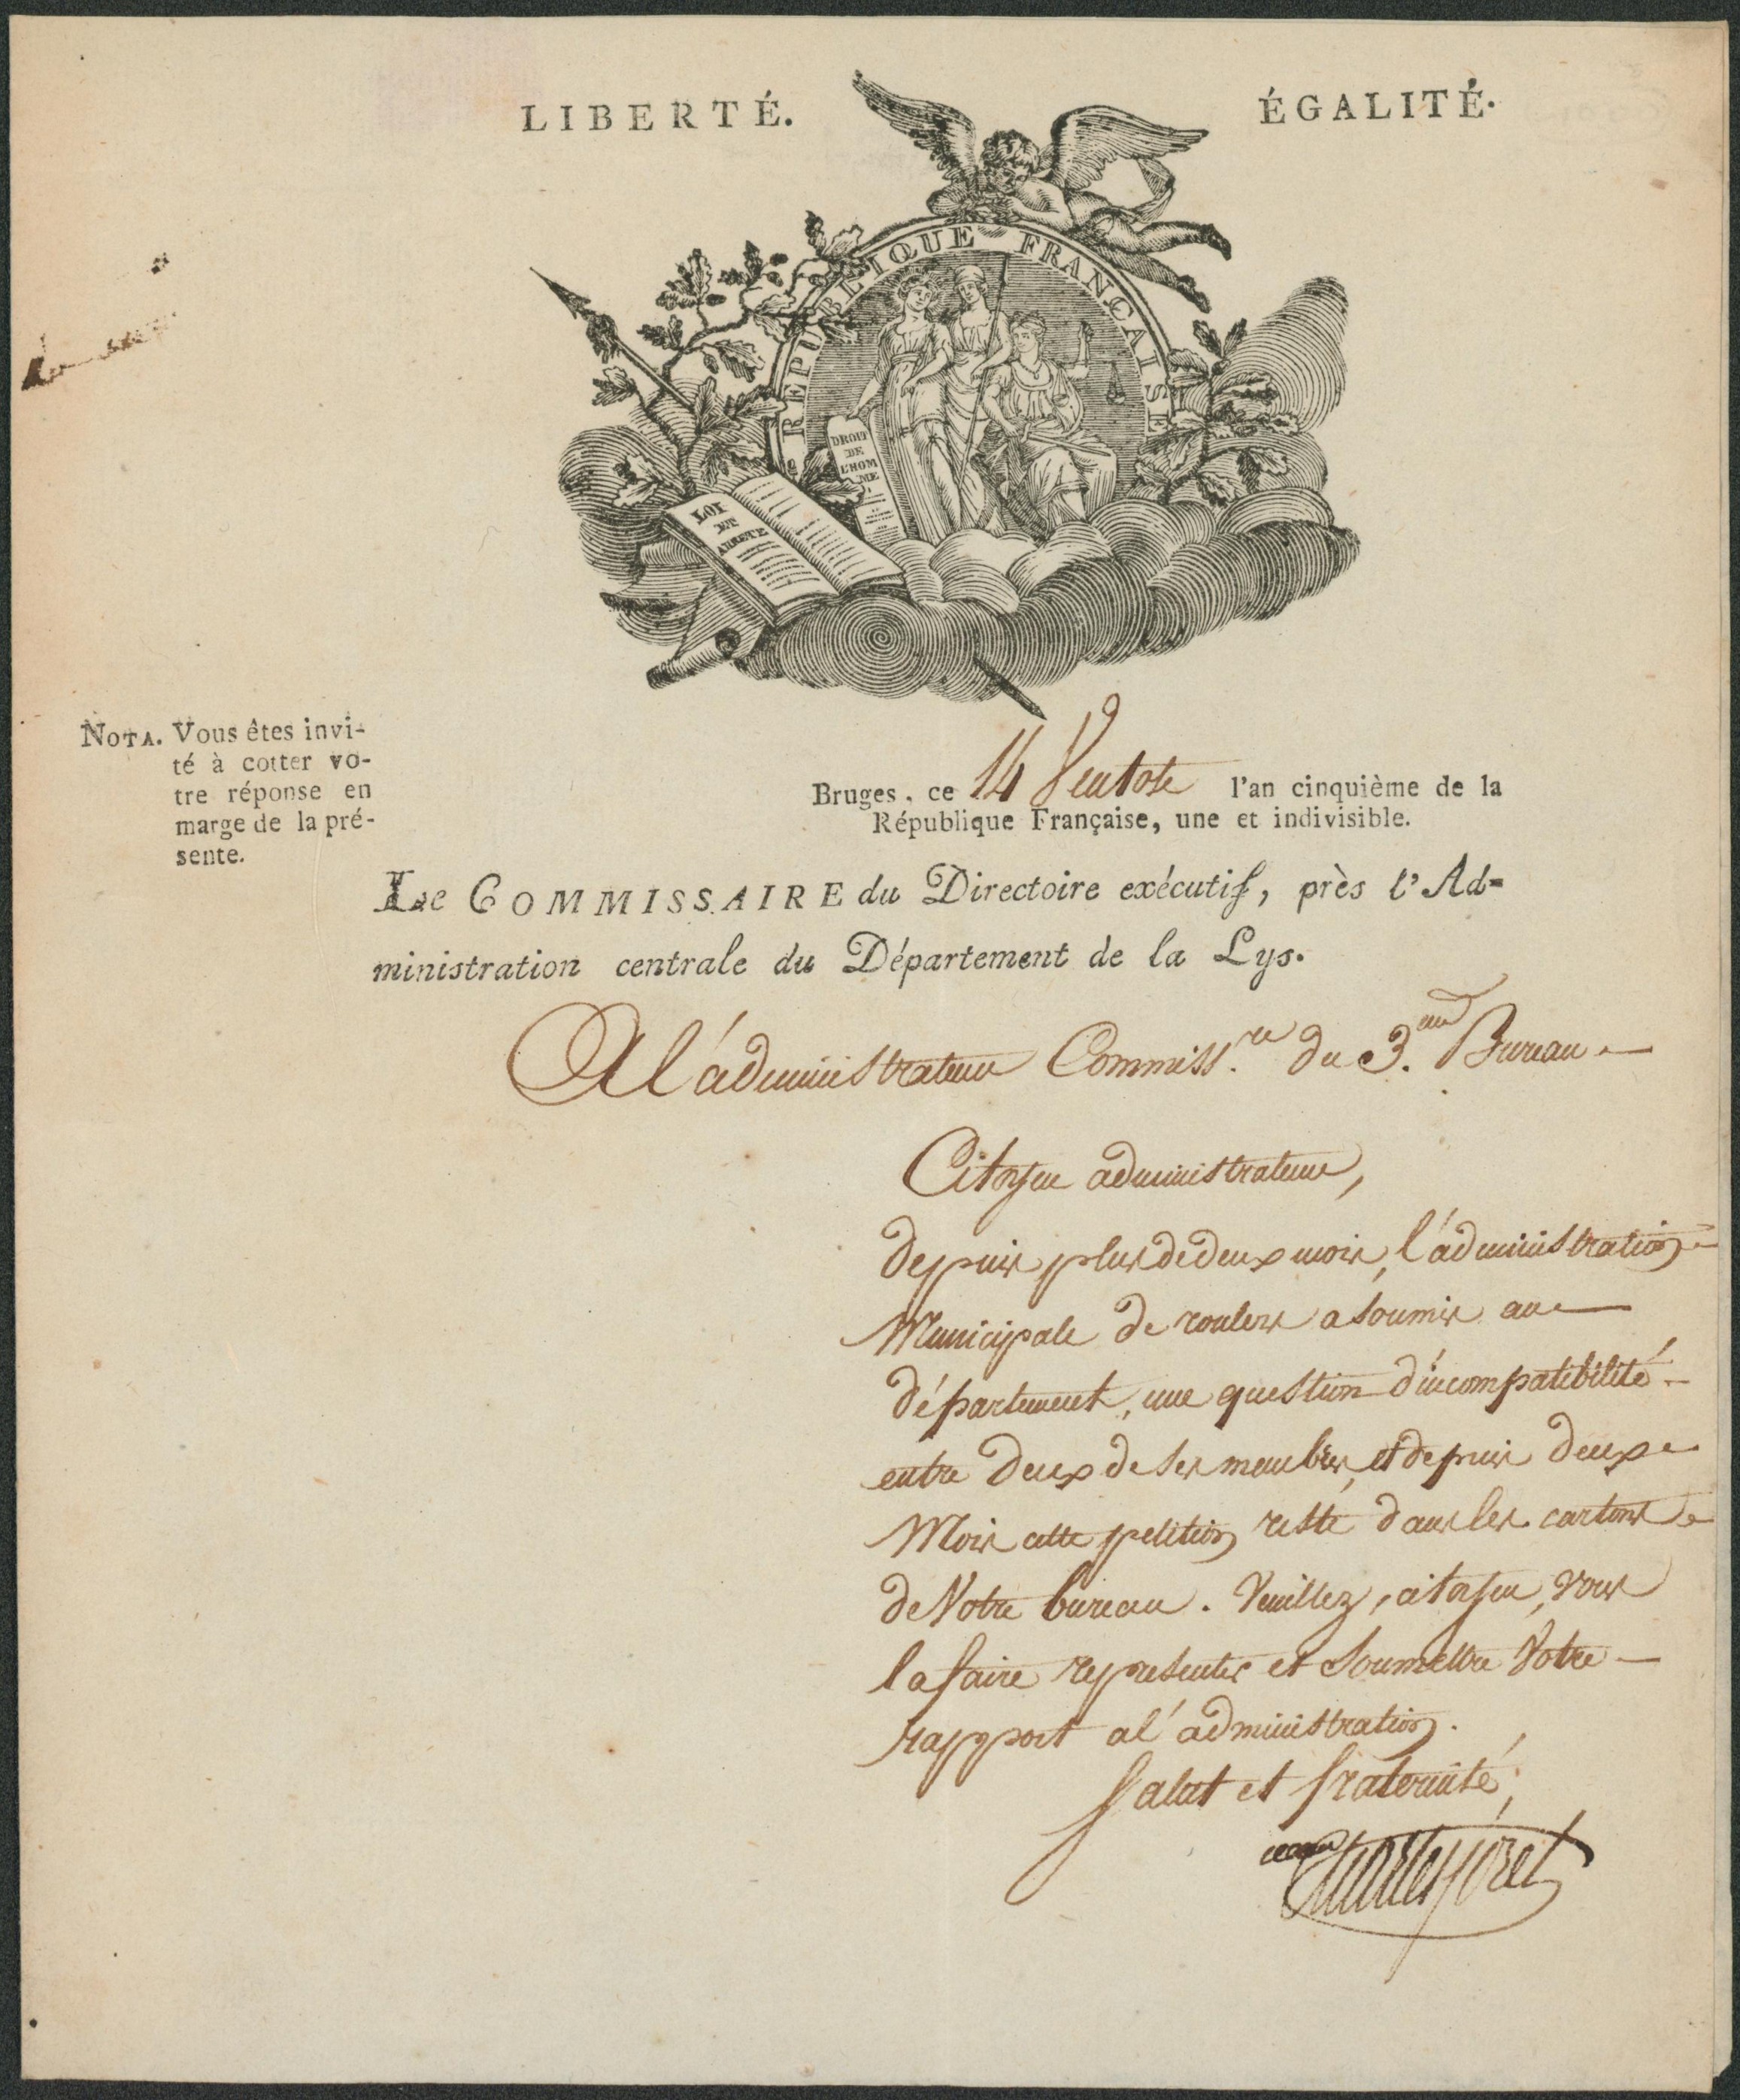 LIBERTÉ.
ÉGALITÉ.
RÉPUBLIQUE FRANÇAISE
DROIT
DE
L'HOM
ME
LOI
ET
ARRETE
NOTA. Vous êtes invi-
té à cotter vo-
tre réponse en
marge de la pré-
sente.
Bruges, ce 14 Ventose l'an cinquième de la
République Française, une et indivisible.
Le COMMISSAIRE du Directoire exécutif, près l'Ad-
ministration centrale du Département de la Lys.
A l'administrateur Commiss.re du 3.eme Bureau.
Citoyen administrateur,
depuis plus de deux mois, l'administration
Municipale de roulers a soumis au
département, une question d'incompatibilité
entre deux de ses membres, et depuis deux
Mois cette petition reste dans les cartons
de Votre bureau. Veuillez, citoyen, vous
la faire representer et soumettre Votre
rapport a l'administration.
Salut et fraternité,